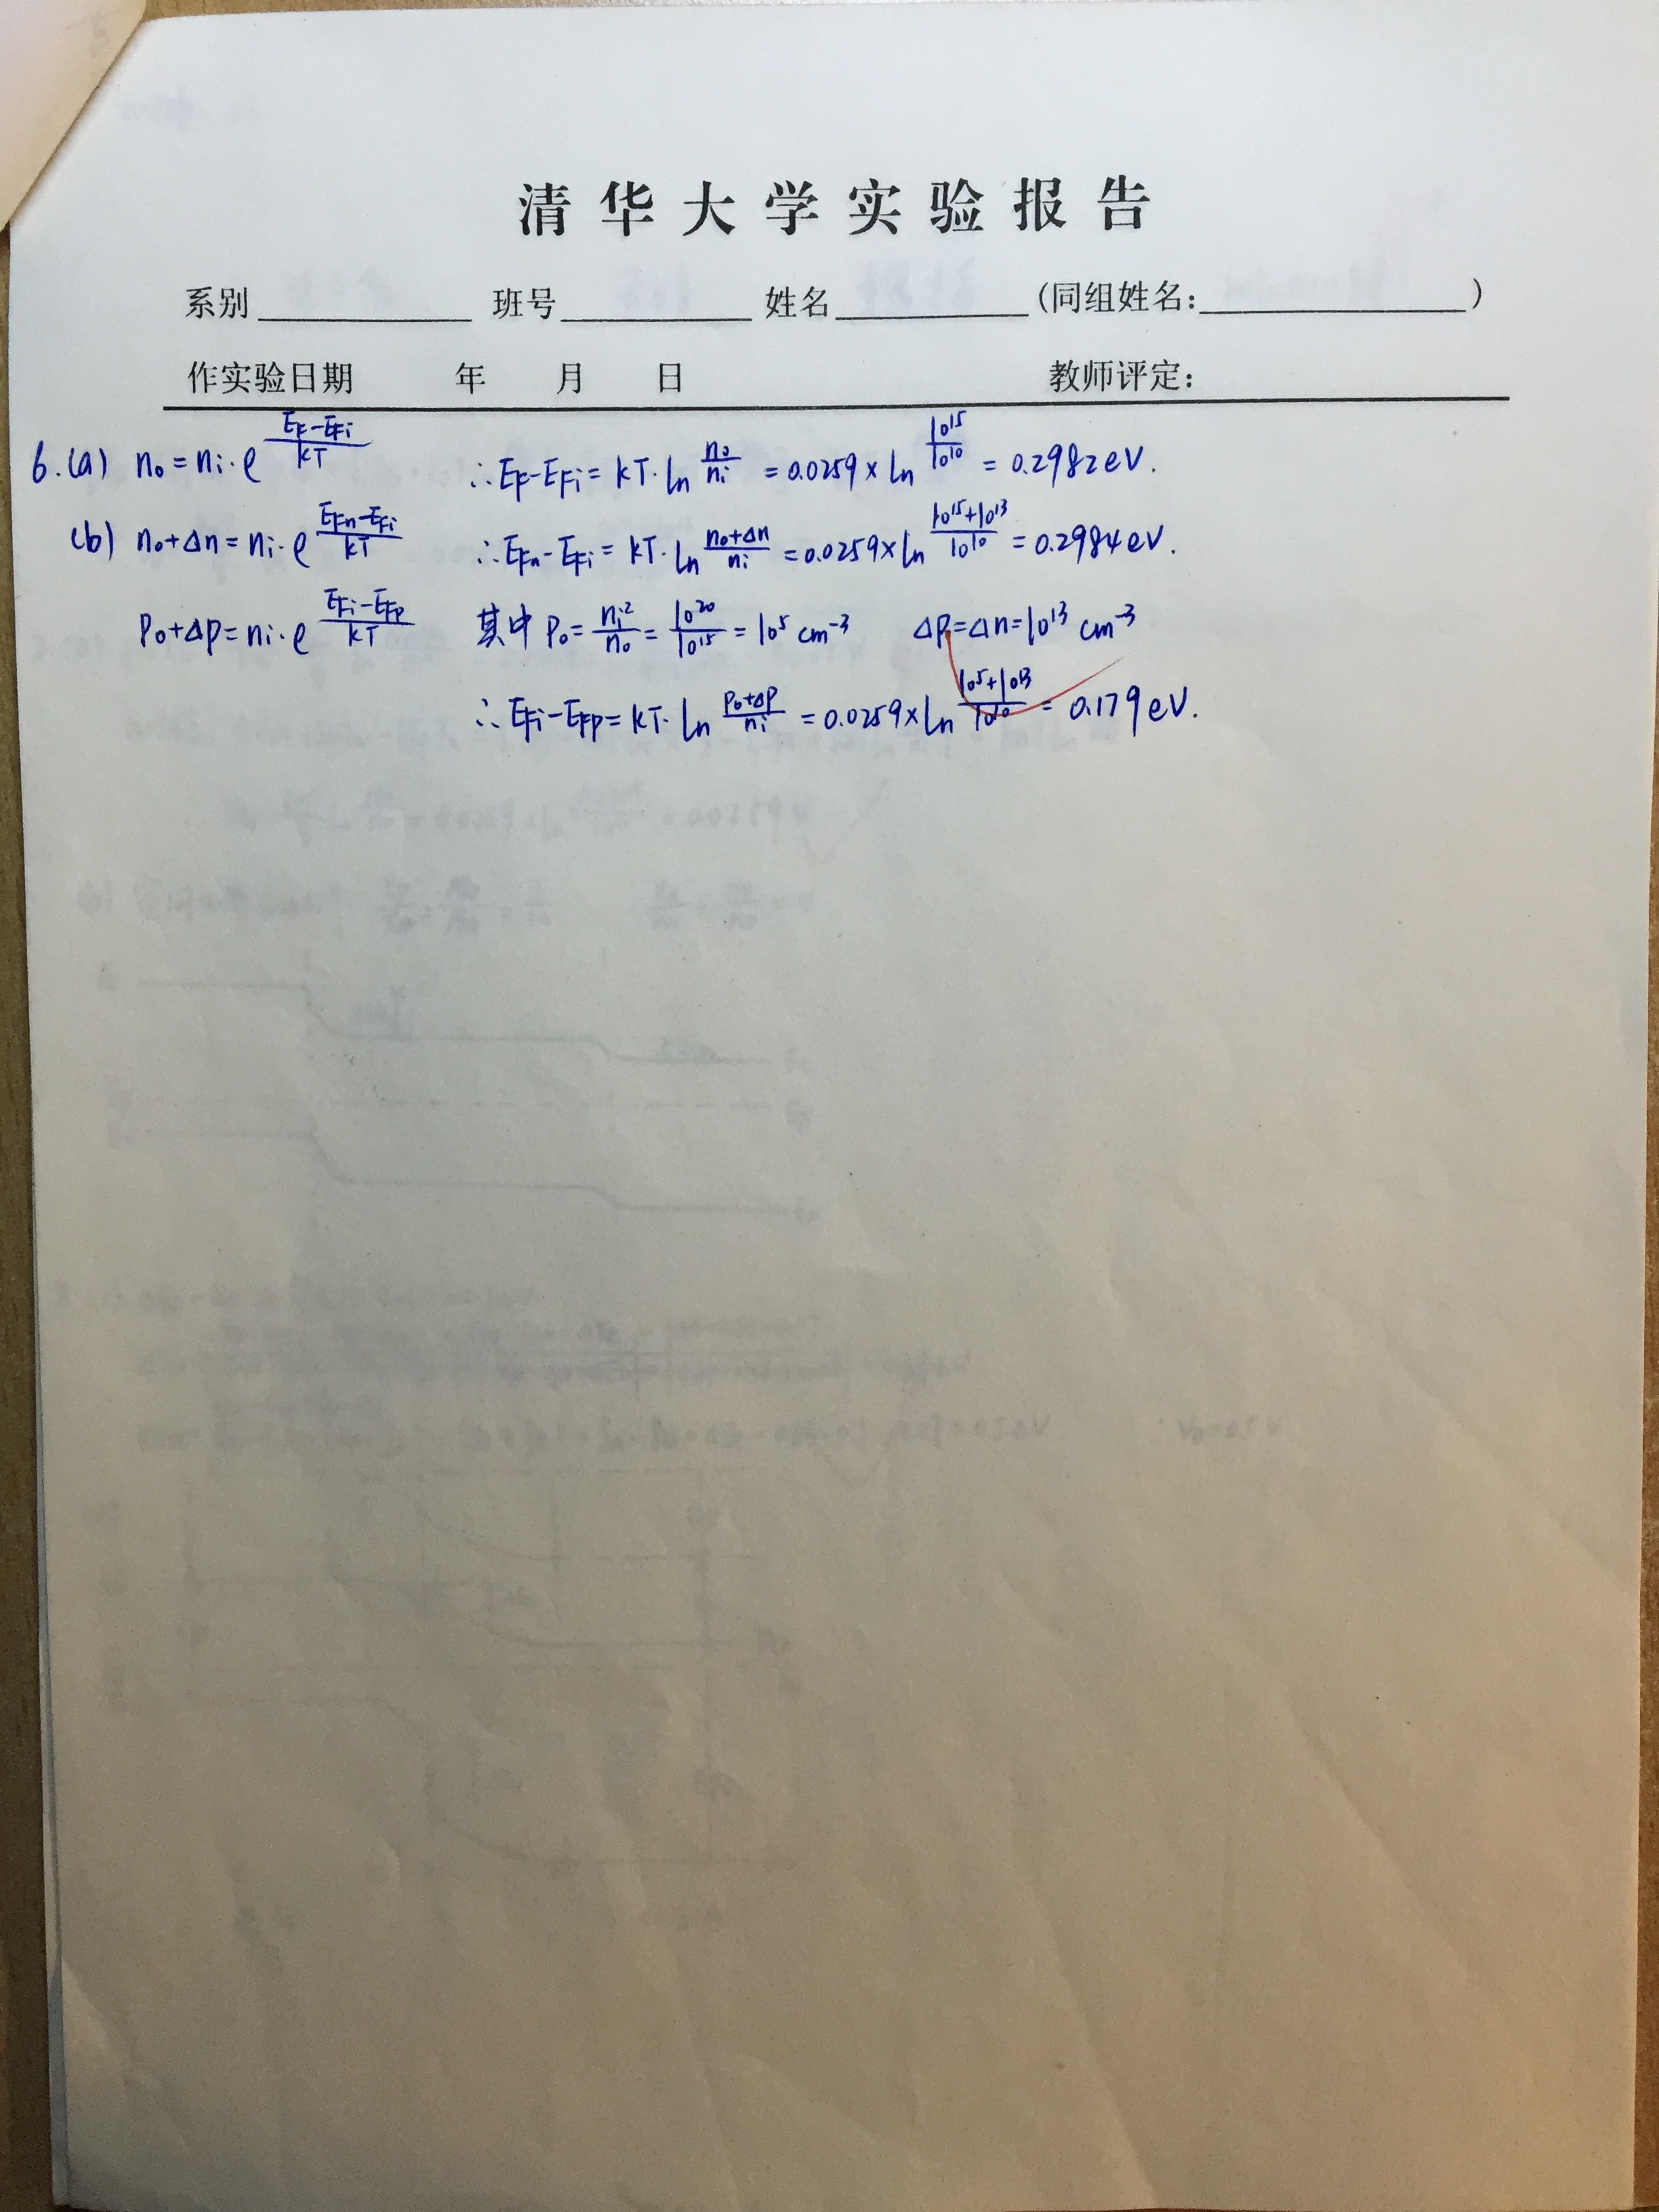 清华大学实验报告
系别 班号 姓名 (同组姓名: )
作实验日期 年 月 日 教师评定:
6.(a) n₀=nᵢ·e^((E_F-E_Fi)/kT) ∴E_F-E_Fi=kT·ln(n₀/nᵢ)=0.0259×ln(10¹⁵/10¹⁰)=0.2982eV.
(b) n₀+Δn=nᵢ·e^((E_Fn-E_Fi)/kT) ∴E_Fn-E_Fi=kT·ln((n₀+Δn)/nᵢ)=0.0259×ln((10¹⁵+10¹³)/10¹⁰)=0.2984eV.
P₀+Δp=nᵢ·e^((E_Fi-E_Fp)/kT) 其中P₀=nᵢ²/n₀=10²⁰/10¹⁵=10⁵cm⁻³ Δp=Δn=10¹³cm⁻³
∴E_Fi-E_Fp=kT·ln((P₀+Δp)/nᵢ)=0.0259×ln((10⁵+10¹³)/10¹⁰)=0.179eV.